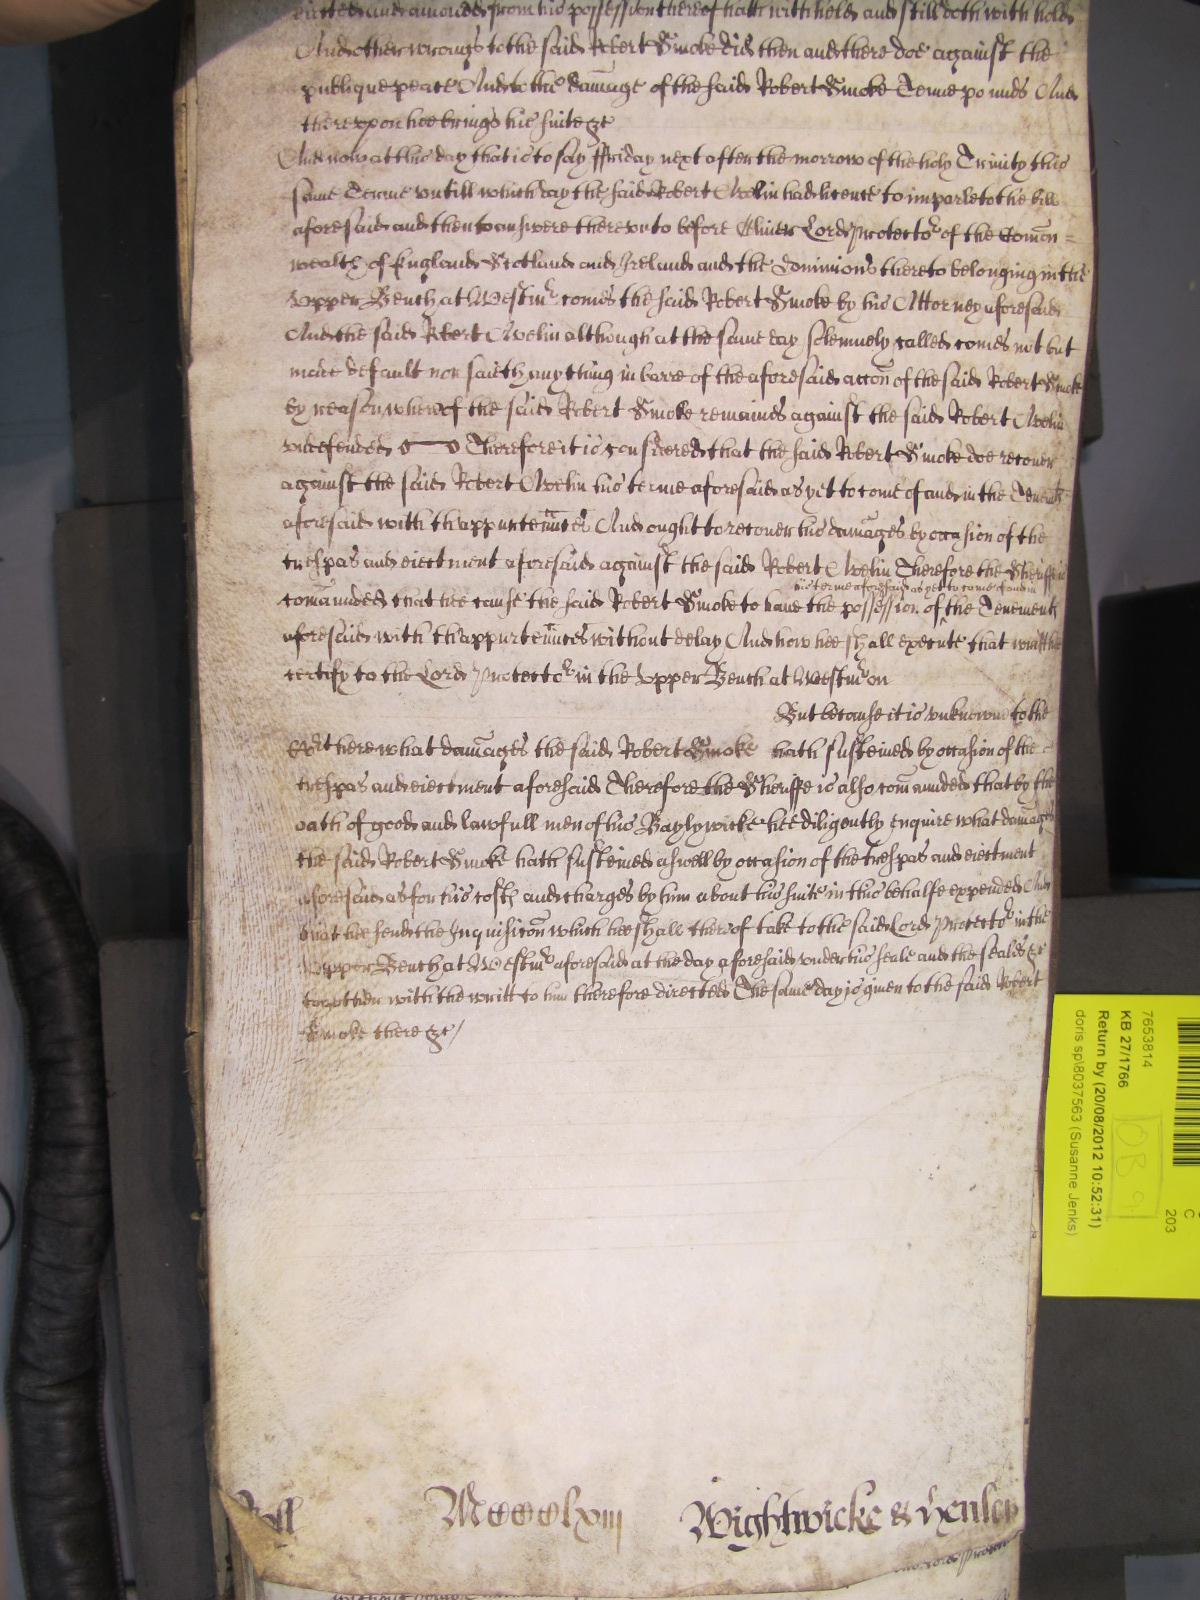 eiected and amoved from his possession thereof hath with held and still doth with hold
And other wrongs to the said Robert Smoke did then and there doe against the
publique peace And to the damage of the said Robert Smoke Tenne pounds And
thereupon hee brings his suite &c
And now at this day that is to say ffriday next after the morrow of the holy Trinity this
same Terme untill which day the said Robert had licence to imparle to the bill
aforesaid and then to answere thereunto before Oliver Lord Protector of the Comon =
wealth of England Scotland and Ireland and the Dominions thereto belonging in the
Upper Bench at Westmr comes the said Robert Smoke by his Attorney aforesaid
And the said Robert although at the same day solemnely called comes not but
made default nor saith any thing in barre of the aforesaid accon of the said Robert Smoke
by reason whereof the said Robert Smoke remaines against the said Robert
undefended Therefore it is considered that the said Robert Smoke doe recover
against the said Robert his terme aforesaid as yet to come of and in the Tenemts
aforesaid with thappurtennces And ought to recover his damages by occasion of the
trespas and eiectment aforesaid against the said Robert Therefore the Sheriffe is
his terme aforesaid as yet to come of and in
comaunded that hee cause the said Robert Smoke to have the possession of the Tenements
aforesaid with thappurtennces without delay And how hee shall execute that writt hee
certify to the Lord Protector in the Upper Bench at Westmr on
But because it is unknowne to the
Cort here what damages the said Robert Smoke hath susteined by occasion of the
trespas and eiectment aforesaid Therefore the Sheriffe is also comaunded that by the
oath of good and lawfull men of his Baylywicke hee diligently enquire what damages
the said Robert Smoke hath susteined aswell by occasion of the trespas and eiectment
aforesaid as for his costs and charges by him about his suite in this behalfe expended And
that hee send the Inquisicon which hee shall thereof take to the said Lord Protector in the
Upper Bench at Westmr aforesaid at the day aforesaid under his seale and the seales &c
together with the writt to him therefore directed The same day is given to the said Robert
Smoke there &c/
Roll MCCCClxiii Wightwicke &
7653814
KB 27/1766
Return by (20/08/2012 10:52:31)
doris sp\8037563 (Susanne Jenks)
C
203